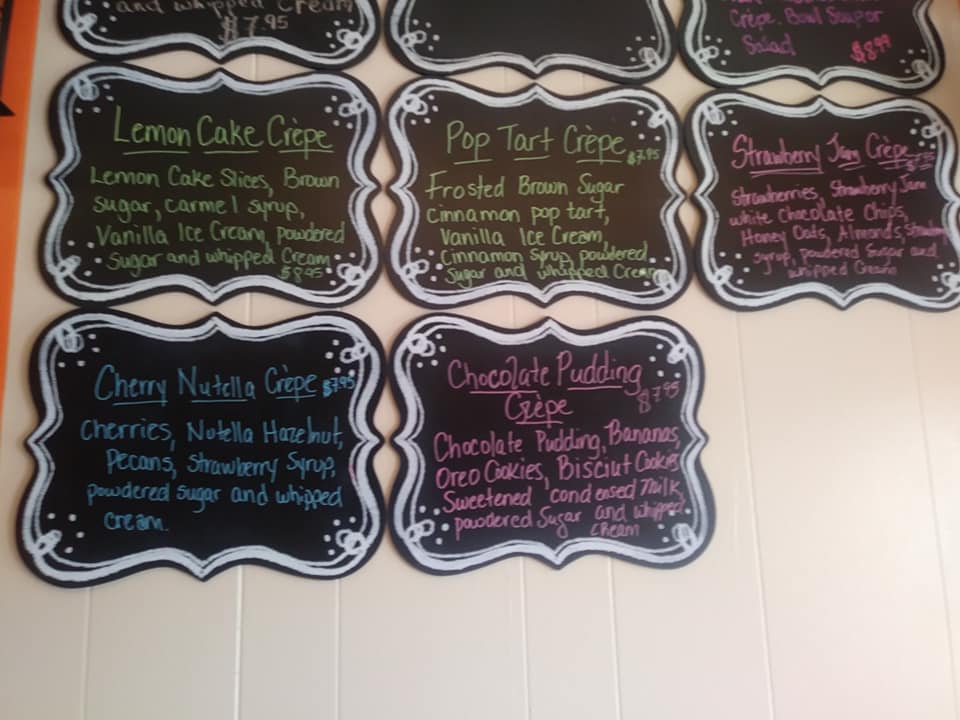 and whipped Cream
$7.95
Crêpe, Bowl Soup or
Salad
$8.99
Lemon Cake Crèpe
Lemon Cake Slices, Brown
sugar, carmel syrup,
Vanilla Ice Cream, powdered
sugar and whipped Cream
$8.95
Pop Tart Crèpe $7.95
Frosted Brown Sugar
cinnamon pop tart,
Vanilla Ice Cream,
Cinnamon syrup, powdered
sugar and whipped Cream
Strawberry Jam Crèpe
Strawberries, Strawberry Jam
white Chocolate Chips,
Honey Oats, Almonds, Strawberry
syrup, powdered sugar and
whipped Cream
Cherry Nutella Crèpe $7.95
Cherries, Nutella Hazelnut,
Pecans, Strawberry Syrup,
powdered sugar and whipped
cream.
Chocolate Pudding
$7.95
Crèpe
Chocolate Pudding, Bananas,
Oreo Cookies, Bisciut Cookies
Sweetened condensed Milk,
powdered Sugar and whipped
cream